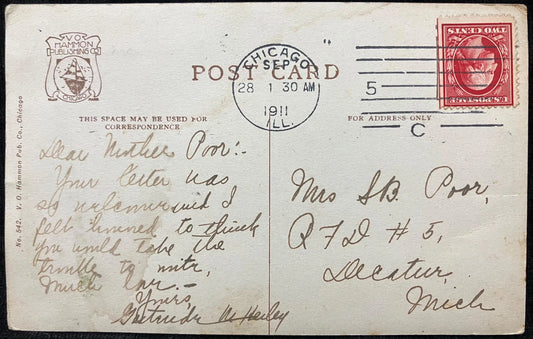 V O
HAMMON
PUBLISHING CO
CHICAGO
POST CARD
CHICAGO
SEP
28 1 30 AM
1911
ILL.
5
C
TWO CENTS
THIS SPACE MAY BE USED FOR
CORRESPONDENCE
FOR ADDRESS ONLY
No. 542. V. O. Hammon Pub. Co., Chicago
Dear Mother Poor:-
Your letter was
so welcome and I
felt honored to think
you would take the
trouble to write,
Much love.-
Yours,
Gertrude
Mrs S.B. Poor,
R F D # 5,
Decatur,
Mich